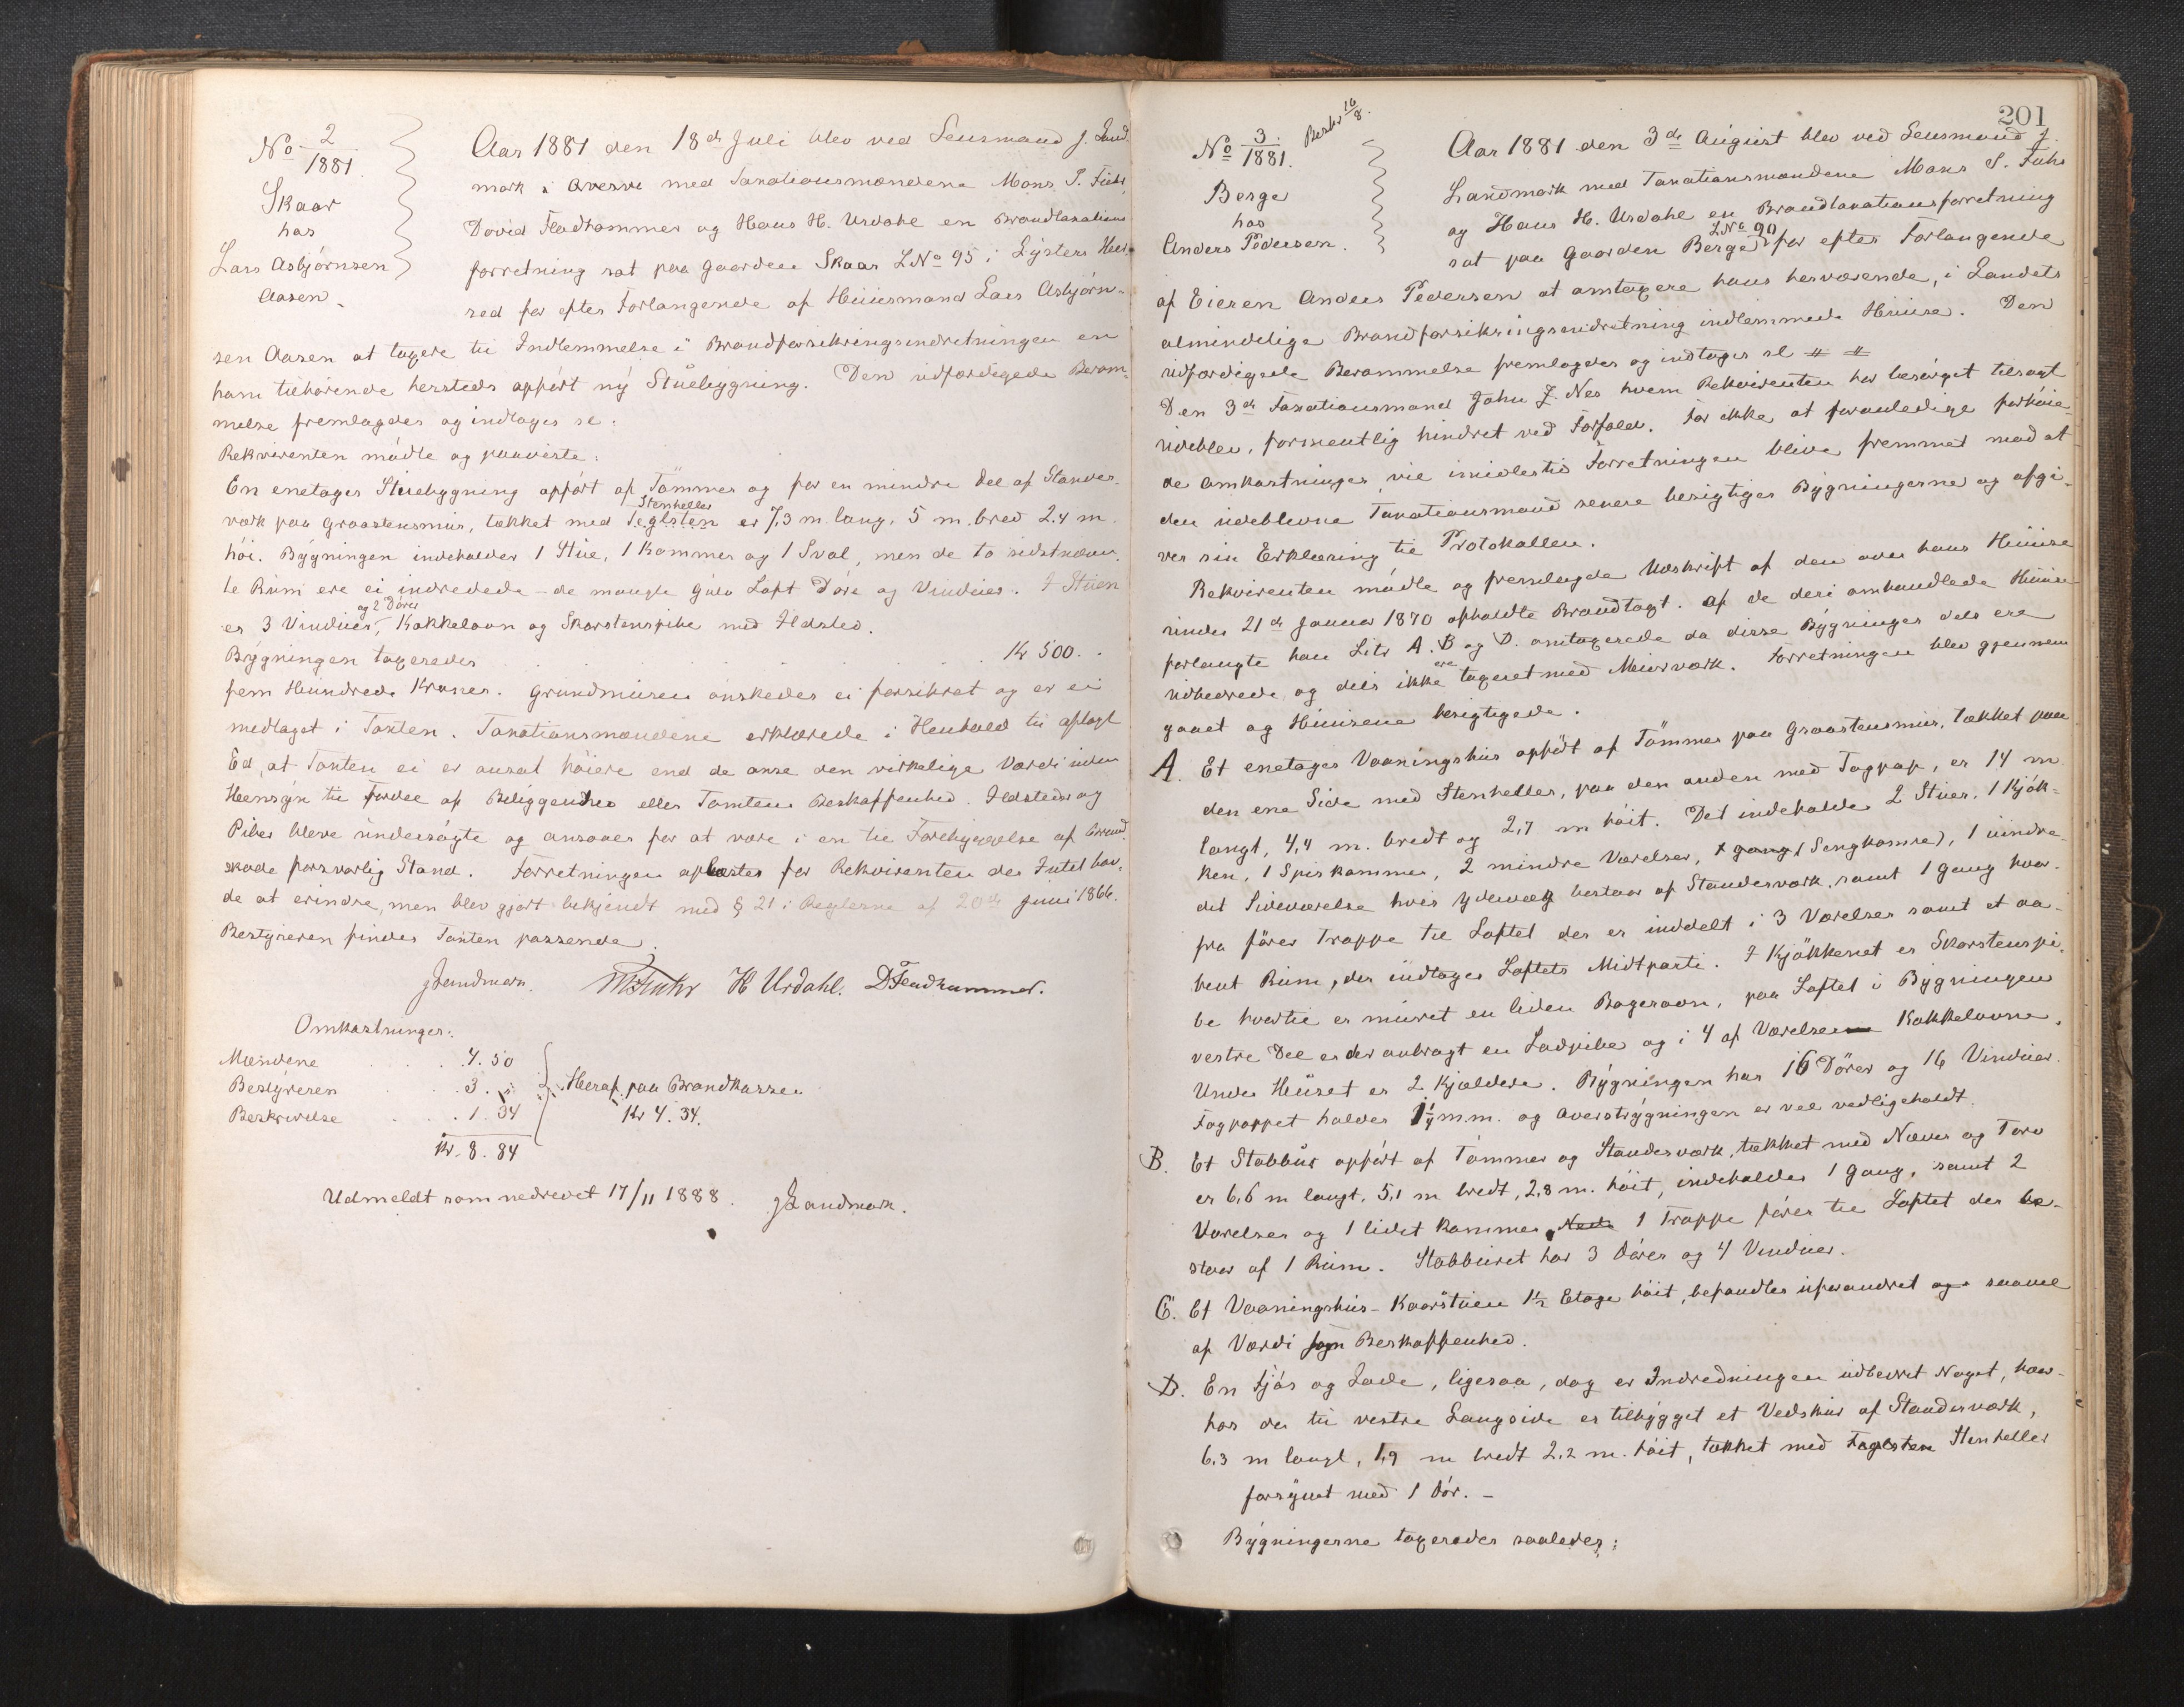 No 2/1881.
Skaar
hos
Lars Asbjörnsen
Aasen.
Aar 1881 den 18de Juli blev ved Lensmand J. Land-
mark i Overvær med Taxationsmændene Mons P. Fuhr,
David Fladhammer og Hans H. Urdahl en Brandtaxations
forretning sat paa Gaarden Skaar LNo 95 i Lysters Her-
red for efter Forlangende af Huusmand Lars Asbjörn-
sen Aasen at taxere til Indlemmelse i Brandforsikringsindretningen en
ham tilhörende hersteds opfört ny Stuebygning. Den udfærdigede Beram-
melse fremlagdes og indtages sl.:
Rekvirenten mödte og paaviste:
En enetages Stuebygning opfört af Tömmer og for en mindre Del af Stander-
værk paa Graastensmur, tækket med Teglsten Stenheller er 7,3 m. lang, 5 m. bred 2.4 m.
höi. Bygningen indeholder 1 Stue, 1 Kammer og 1 Sval, men de to sidstnævn-
te Rum ere ei indredede - de mangle Gulv Loft Döre og Vinduer. I Stuen
er 3 Vinduer, og 2 Döre, Kakkelovn og Skorstenspibe med Ildsted.
Bygningen taxeredes . . . . . . Kr 500. .
fem Hundrede Kroner. Grundmuren önskedes ei forsikret og er ei
medtaget i Taxten. Taxationsmændene erklærede i Henhold til aflagt
Ed, at Taxten ei er ansat höiere end de anse den virkelige Værdi uden
Hensyn til Fordel af Beliggenhed eller Tomtens Beskaffenhed. Ildsteder og
Piber bleve undersögte og ansaaes for at være i en til Forebyggelse af Brand-
skade forsvarlig Stand. Forretningen oplæstes for Rekvirenten der Intet hav-
de at erindre, men blev gjort bekjendt med § 21 i Reglerne af 20de Juni 1866.
Bestyreren finder Taxten passende.
JLandmark. MFuhr H Urdahl. DFladhammer.
Omkostninger:
Mændene . . . 4.50
Bestyreren . . . 3. "
Beskrivelse . . . 1.34
Kr. 8.84
Heraf paa Brandkassen
Kr 4.34.
Udmeldt som nedrevet 17/11 1888. JLandmark.
201
No 3/1881.
Beskr 16/8.
Berge
hos
Anders Pedersen.
Aar 1881 den 3de August blev ved Lensmand J.
Landmark med Taxationsmændene Mons P. Fuhr
og Hans H. Urdahl en Brandtaxationsforretning
sat paa Gaarden Berge LNo 90 for efter Forlangende
af Eieren Anders Pedersen at omtaxere hans herværende, i Landets
almindelige Brandforsikringsindretning indlemmede Huuse. Den
udfærdigede Berammelse fremlagdes og indtages sl " "
Den 3de Taxationsmand John J. Nes hvem Rekvirenten har besörget tilsagt
udeblev, formentlig hindret ved Forfald. For ikke at foranledige forhöie-
de Omkostninger, vil imidlertid Forretningen blive fremmet mod at
den udeblevne Taxationsmand senere besigtiger Bygningerne og afgi-
ver sin Erklæring til Protokollen.
Rekvirenten mödte og fremlagde Udskrift af den over hans Huuse
under 21de Januar 1870 afholdte Brandtaxt. Af de deri omhandlede Huuse
forlangte han Litr A. B og D. omtaxerede da disse Bygninger dels ere
udbedrede og dels ikke ere taxeret med Muurværk. Forretningen blev gjennem-
gaaet og Huusene besigtigede.
A. Et enetages Vaaningshus opfört af Tömmer paa Graastensmur, tækket paa
den ene Side med Stenheller, paa den anden med Tagpap, er 14 m
langt, 4,4 m. bredt og 2,7 m höit. Det indeholder 2 Stuer, 1 Kjök-
ken, 1 Spiskammer, 2 mindre Værelser, 1 gang (Sengkamre), 1 uindre-
det Sideværelse hvis Ydervæg bestaar af Standerværk, samt 1 Gang hvor-
fra förer Trappe til Loftet der er inddelt i 3 Værelser samt et aa-
bent Rum, der indtager Loftets Midtparti. I Kjökkenet er Skorstenspi-
be hvortil er muret en liden Bagerovn, paa Loftet i Bygningens
vestre Del er der anbragt en Ladpibe og i 4 af Værelserne Kakkelovne.
Under Huset er 2 Kjældere. Bygningen har 16 Dörer og 16 Vinduer.
Tagpappet holder 1 1/4 mm. og Overstrygningen er vel vedligeholdt.
B. Et Stabbur opfört af Tömmer og Standerværk, tækket med Næver og Torv
er 6,6 m langt, 5,1 m bredt, 2,8 m. höit, indeholder 1 Gang, samt 2
Værelser og 1 lidet Kammer. Neds 1 Trappe förer til Loftet der be-
staar af 1 Rum. Stabburet har 3 Dörer og 4 Vinduer.
C. Et Vaaningshus - Kaarstuen 1 1/2 Etage höit, befandtes uforandret og saavel
af Værdi som Beskaffenhed.
D. En Fjös og Lade, ligesaa, dog er Indredningen udbedret Noget, hvor-
hos der til vestre Langside er tilbygget et Vedskur af Standerværk,
6.3 m langt, 1,9 m bredt 2.2 m. höit, tækket med Taglsten Stenheller
forsynet med 1 Dör. -
Bygningerne taxeredes saaledes: